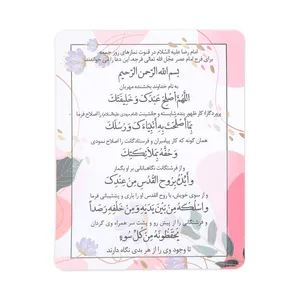 امام رضا علیه السلام در قنوت نمازهای روز جمعه
برای فرج امام عصر عجّل الله تعالی فرجه، این دعا را می خواندند
بسم الله الرّحمن الرّحیم
به نام خداوند بخشنده مهربان
اَللّهُمَّ اَصْلِحْ عَبْدَكَ وَ خَلیفَتَكَ
پروردگارا؛ کار ظهور بنده شایسته و جانشینت را اصلاح فرما
بِما اَصْلَحْتَ بِهِ اَنْبِیاءَكَ وَ رُسُلَكَ
همان گونه که کار پیامبران و فرستادگانت را اصلاح نمودی
وَ حُفَّهُ بِمَلائِكَتِكَ
و از فرشتگانت نگاهبانانی بر او بگمار
وَ اَیِّدْهُ بِرُوحِ الْقُدُسِ مِنْ عِنْدِكَ
و از سوی خویش، با روح القدس او را یاری و پشتیبانی فرما
وَ اسْلُكْهُ مِنْ بَیْنِ یَدَیْهِ وَ مِنْ خَلْفِهِ رَصَداً
و فرشتگانی را از پیش رو و پشت سر همراه وی گردان
یَحْفَظُونَهُ مِنْ كُلِّ سُوءٍ
تا وجود وی را از هر بدی نگاه دارند